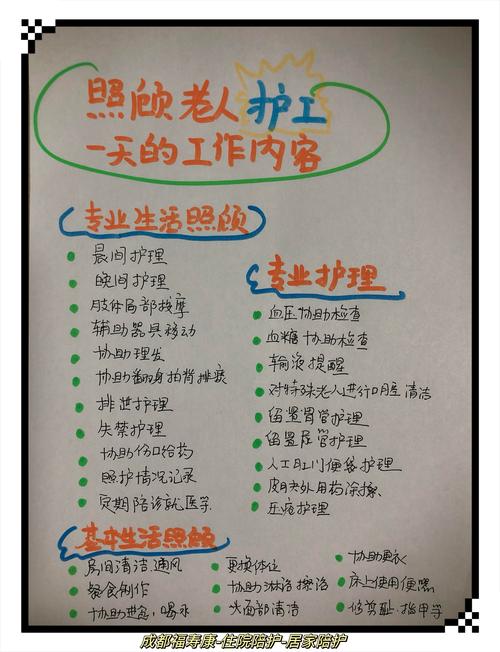 照顾老人护工
一天的工作内容
专业生活照顾
晨间护理
晚间护理
肢体局部按摩
辅助器具移动
协助理发
协助翻身拍背排痰
排泄护理
失禁护理
协助口服给药
照护情况记录
定期陪诊就医
专业护理
血压协助检查
血糖协助检查
输液提醒
对特殊老人进行口腔清洁
留置胃管护理
留置尿管护理
人工肛门便袋护理
皮肤外用药涂擦
压疮护理
基本生活照顾
房间清洁通风
餐食制作
协助进食,喝水
更换体位
协助沐浴擦浴
头面部清洁
协助更衣
床上使用便器
修剪趾、指甲等
成都福寿康-住院陪护-居家陪护